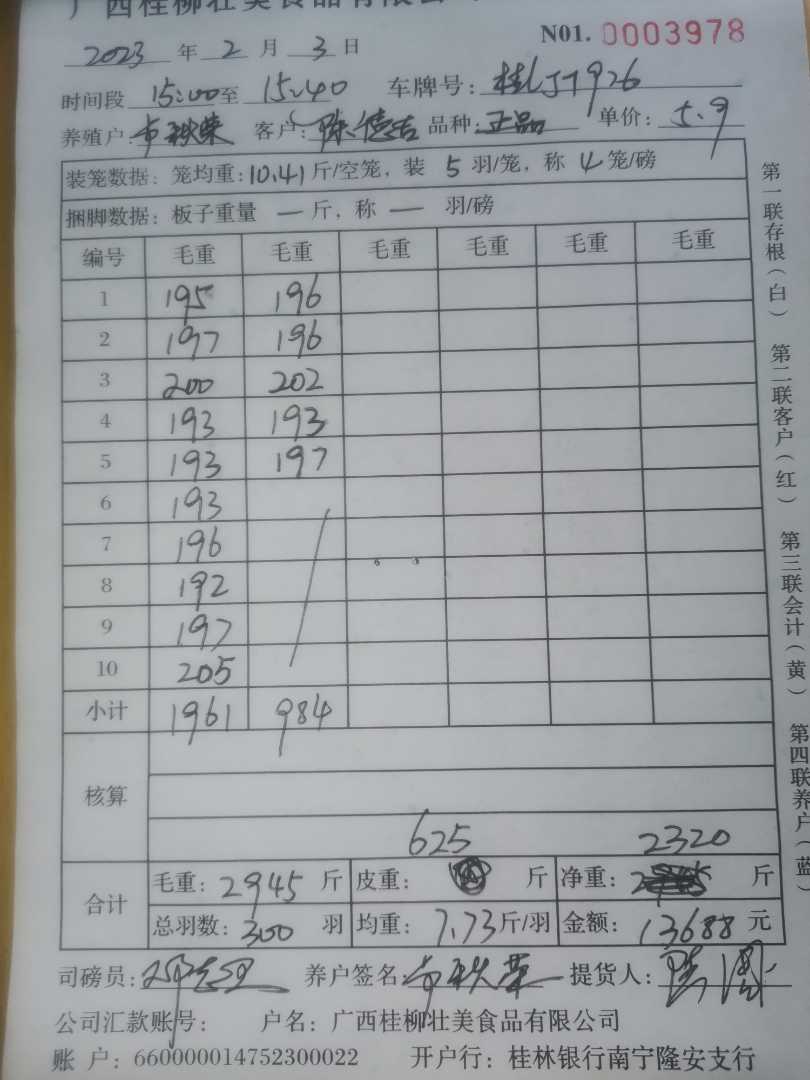 广西桂柳壮美食品有限公
2023 年 2 月 3 日 N01. 0003978
时间段 15:00 至 15:40 车牌号: 桂 926
养殖户: 韦秋荣 客户: 陈德吉 品种: 正品 单价: 5.9
装笼数据: 笼均重: 10.41 斤/空笼, 装 5 羽/笼, 称 4 笼/磅
捆脚数据: 板子重量 — 斤, 称 — 羽/磅
编号 毛重 毛重 毛重 毛重 毛重 毛重
1 195 196
2 197 196
3 200 202
4 193 193
5 193 197
6 193
7 196
8 192
9 197
10 205
小计 1961 984
核算
625 2320
合计 毛重: 2945 斤 皮重: 斤 净重: 斤
总羽数: 300 羽 均重: 7.73 斤/羽 金额: 13688 元
司磅员: 养户签名: 韦秋荣 提货人:
公司汇款账号: 户名: 广西桂柳壮美食品有限公司
账 户: 660000014752300022 开户行: 桂林银行南宁隆安支行
第一联存根(白) 第二联客户(红) 第三联会计(黄) 第四联养户(蓝)